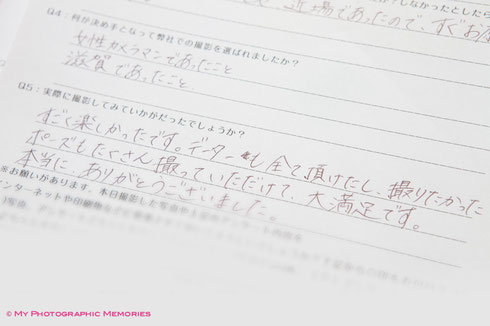 近場であったので、すぐお
Q4：何が決め手となって弊社での撮影を選ばれましたか？
女性カメラマンであったこと
滋賀であったこと
Q5：実際に撮影してみていかがだったでしょうか？
すごく楽しかったです。データーも全て頂けたし、撮りたかった
ポーズもたくさん撮っていただけて、大満足です。
本当に、ありがとうございました。
お願いがあります。本日撮影した写真や
インターネットや印刷物など
© My Photographic Memories